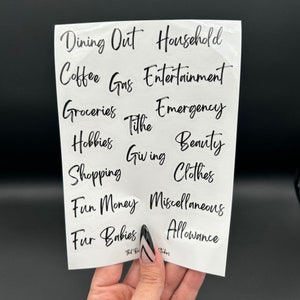 Dining Out Household
Coffee Gas Entertainment
Groceries Emergency
Tithe
Hobbies Beauty
Giving
Shopping Clothes
Fun Money Miscellaneous
Fur Babies Allowance